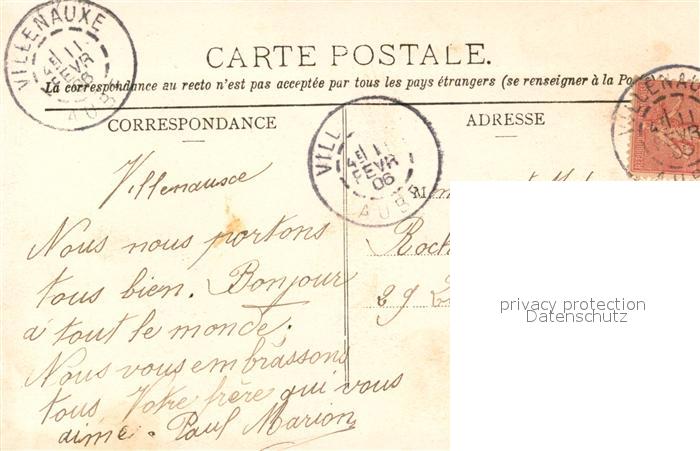 CARTE POSTALE.
La correspondance au recto n'est pas acceptée par tous les pays étrangers (se renseigner à la Po
CORRESPONDANCE
ADRESSE
VILLENAUXE
11
FEVR
06
AUBE
VILL
11
FEVR
06
AUBE
VILLENAU
11
06
Villenauxe
Nous nous portons
tous bien. Bonjour
à tout le monde.
Nous vous embrassons
tous Votre frère qui vous
aime. Paul Marion
M
Roch
29
privacy protection
Datenschutz